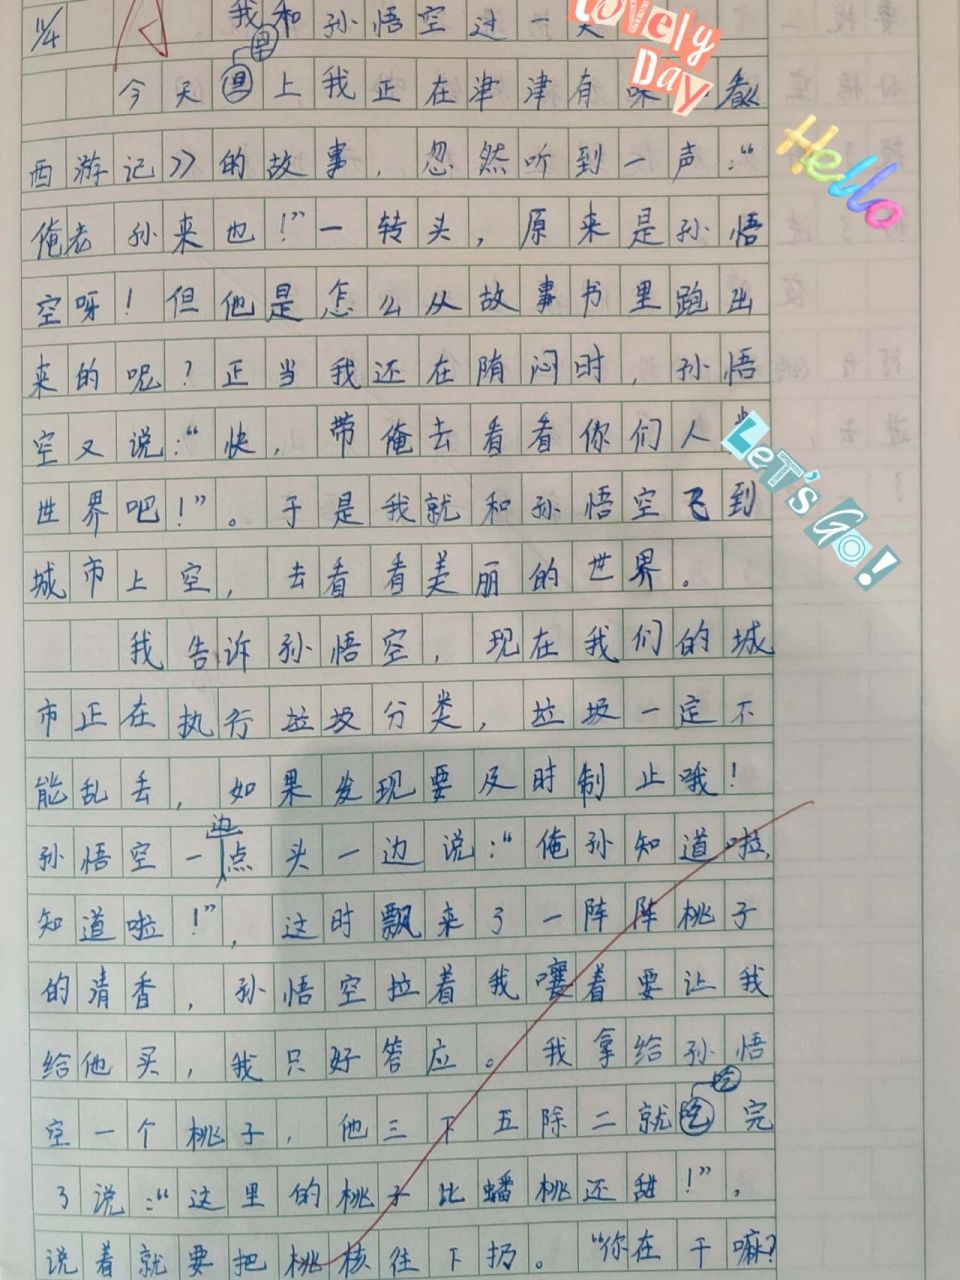 11/4
我和孙悟空过一天
Lovely
Day
里
今天但上我正在津津有味 看《
西游记》的故事，忽然听到一声：“
Hello
俺老孙来也！”一转头，原来是孙悟
空呀！但他是怎么从故事书里跑出
来的呢？正当我还在陏闷时，孙悟
空又说：“快，带俺去看看你们人
Let's Go!
世界吧！”。于是我就和孙悟空飞到
城市上空，去看看美丽的世界。
我告诉孙悟空，现在我们的城
市正在执行垃圾分类，垃圾一定不
能乱丢，如果发现要及时制止哦！
边
孙悟空一点头一边说：“俺孙知道啦，
知道啦！”，这时飘来了一阵阵桃子
的清香，孙悟空拉着我嚷着要让我
给他买，我只好答应。我拿给孙悟
吃
空一个桃子，他三下五除二就吃完
了说：“这里的桃子比蟠桃还甜！”，
说着就要把桃核往下扔。“你在干嘛？